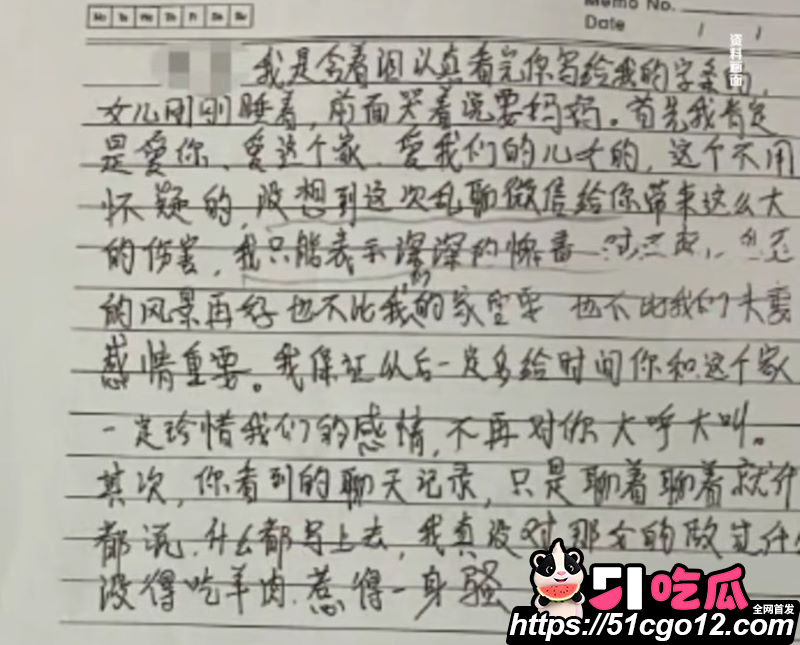 Mo Tu We Th Fr Sa Su
Memo No.
Date / /
资料画面
我是含着泪认真看完你写给我的字条的,
女儿刚刚睡着,前面哭着说要妈妈。首先我肯定
是爱你、爱这个家、爱我们的儿女的,这个不用
怀疑的,没想到这次乱聊微信给你带来这么大
的伤害,我只能表示深深的懊悔
的风景再好也不比我的家重要 也不比我们夫妻
感情重要。我保证从后一定多给时间你和这个家
一定珍惜我们的感情,不再对你大呼大叫。
其次,你看到的聊天记录,只是聊着聊着就什
都说,什么都写上去,我真没对那女的做过什么
没得吃羊肉.惹得一身骚
51吃瓜
全网首发
https://51cgo12.com